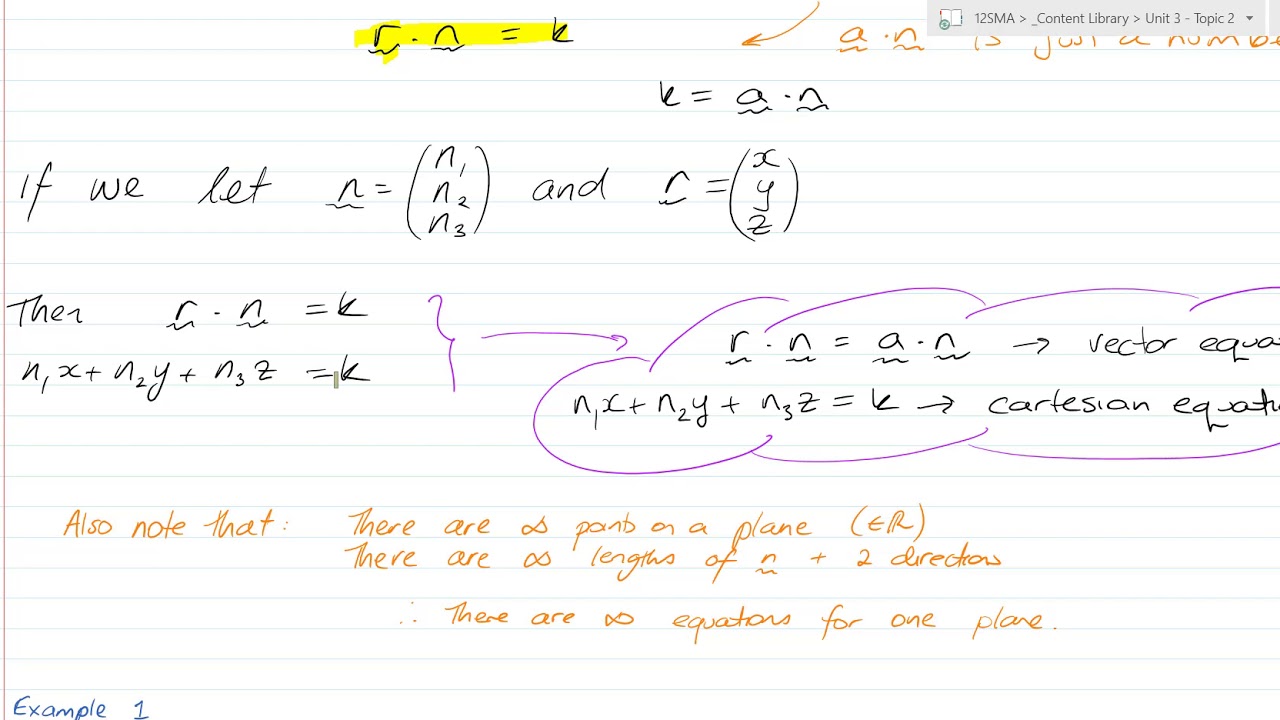 12SMA > _Content Library > Unit 3 - Topic 2
r · n = k
a · n is just a numbe
k = a · n
If we let n = (n₁ n₂ n₃) and r = (x y z)
Then r · n = k
n₁x + n₂y + n₃z = k
r · n = a · n → vector equa
n₁x + n₂y + n₃z = k → cartesian equati
Also note that: There are ∞ points on a plane (∈ℝ)
There are ∞ lengths of n + 2 directions
∴ There are ∞ equations for one plane.
Example 1